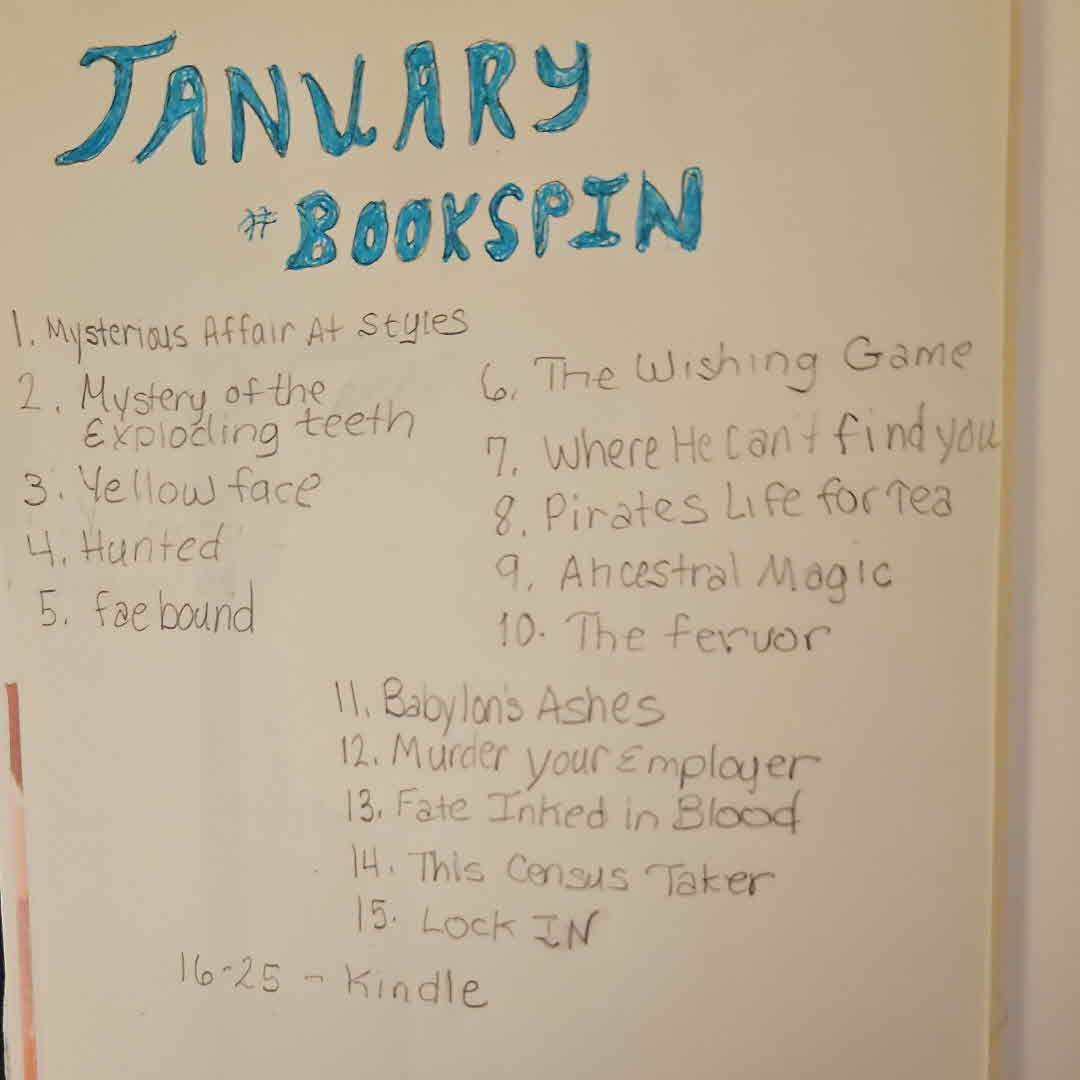 JANUARY
#BOOKSPIN
1. Mysterious Affair At Styles
2. Mystery of the
Exploding teeth
3. Yellow face
4. Hunted
5. faebound
6. The Wishing Game
7. Where He Can't find you
8. Pirates Life for Tea
9. Ancestral Magic
10. The fervor
11. Babylon's Ashes
12. Murder your Employer
13. Fate Inked in Blood
14. This Census Taker
15. Lock IN
16-25 - Kindle